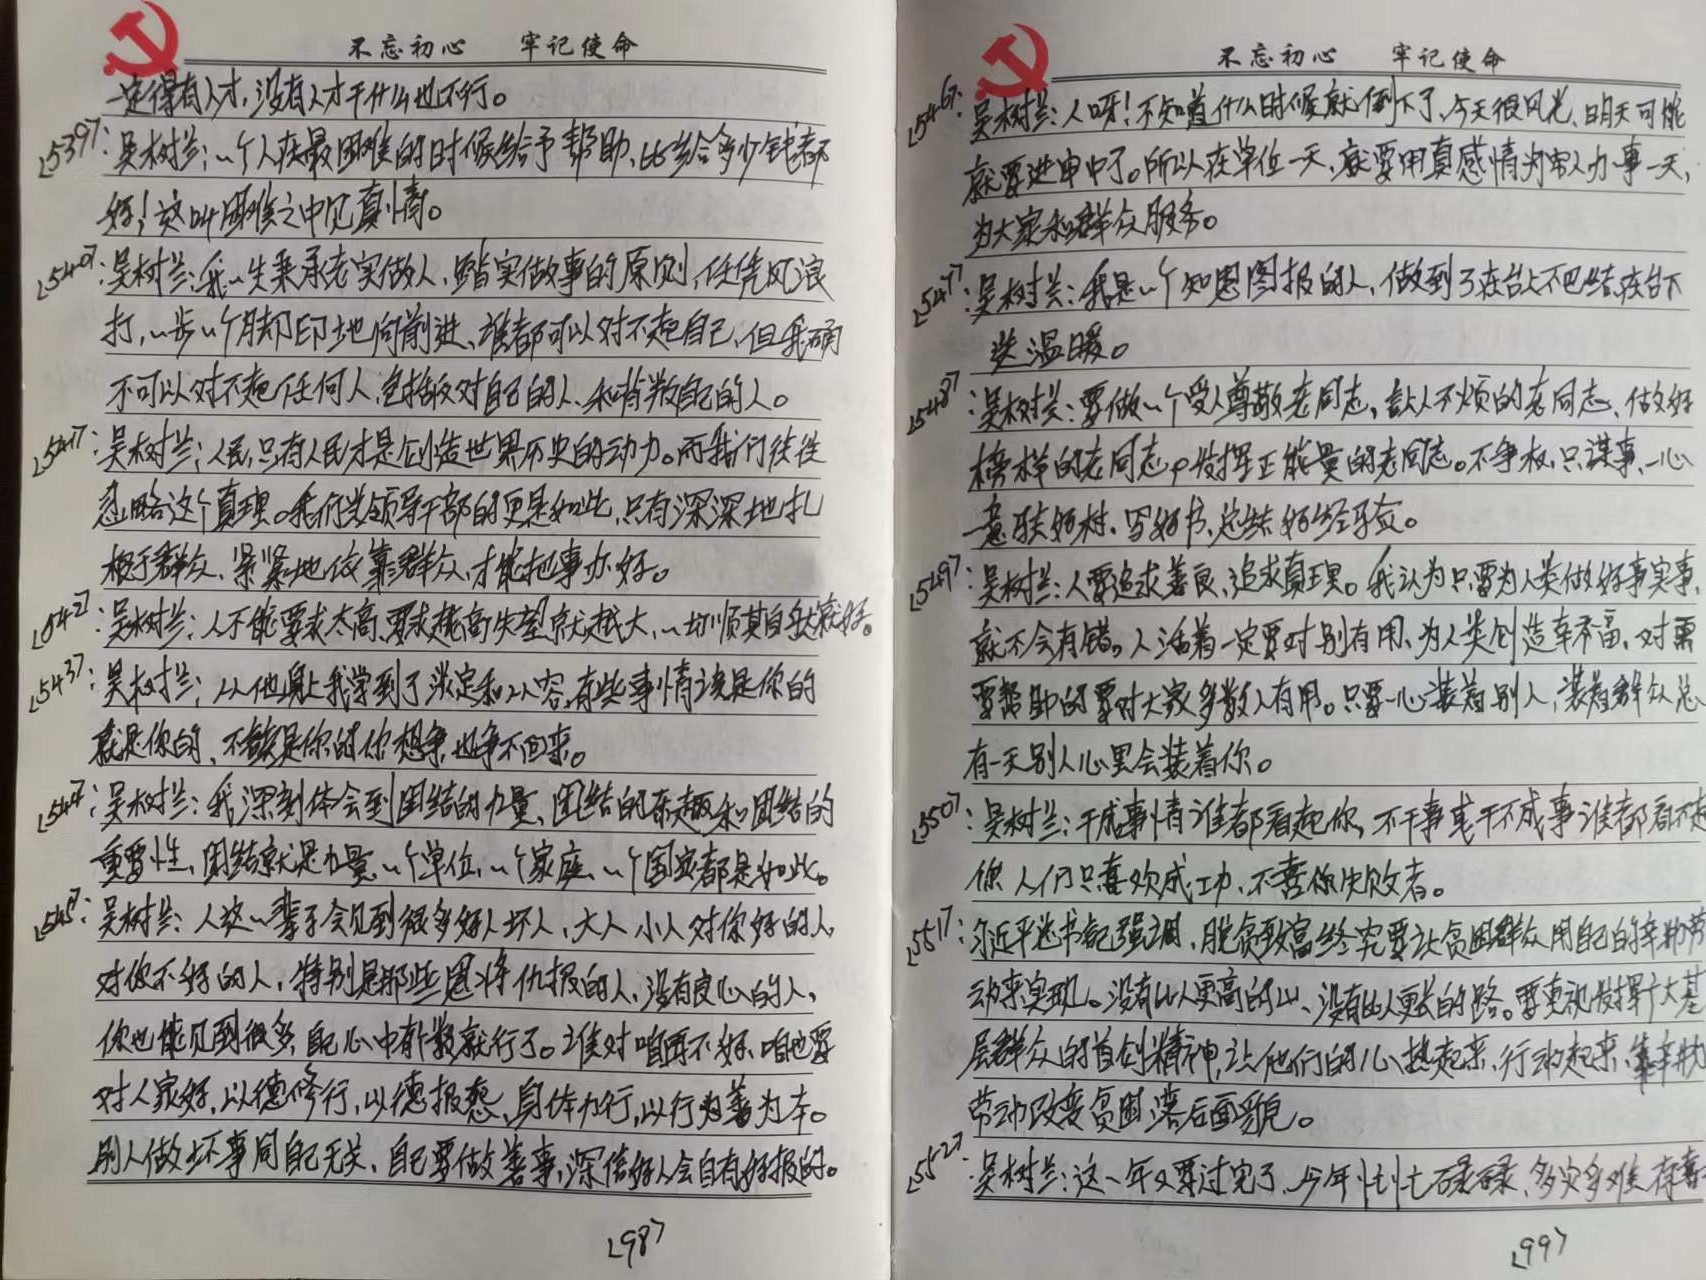 不忘初心 牢记使命
一定得有人才,没有人才干什么也不行。
<539>:吴树兰:一个人在最困难的时候给予帮助,比给多少钱都
好!这叫困难之中见真情。
<540>:吴树兰:我一生秉承老实做人,踏实做事的原则,任凭风浪
打,一步一个脚印地向前进、谁都可以对不起自己,但我确
不可以对不起任何人,包括反对自己的人、和背叛自己的人。
<541>:吴树兰:人民,只有人民才是创造世界历史的动力。而我们往往
忽略这个真理。我们当领导干部的更是如此,只有深深地扎
根于群众、紧紧地依靠群众,才能把事办好。
<542>:吴树兰:人不能要求太高,要求越高失望就越大,一切顺其自然就好。
<543>:吴树兰:从他身上我学到了淡定和从容,有些事情该是你的
就是你的,不该是你的你想争也争不回来。
<544>:吴树兰:我深刻体会到团结的力量、团结的乐趣和团结的
重要性,团结就是力量,一个单位,一个家庭、一个国家都是如此。
<545>:吴树兰:人这一辈子会见到很多好人坏人,大人小人对你好的人,
对你不好的人,特别是那些恩将仇报的人,没有良心的人,
你也能见到很多,自己心中有数就行了。谁对咱再不好,咱也要
对人家好,以德修行,以德报怨,身体力行,以行为善为本。
别人做坏事同自己无关、自己要做善事,深信好人会自有好报的。
<98>
不忘初心 牢记使命
<546>:吴树兰:人呀!不知道什么时候就倒下了、今天很风光、明天可能
就要进申中了。所以在单位一天,就要用真感情为帮人办事一天,
为大家和群众服务。
<547>:吴树兰:我是一个知恩图报的人,做到了在台上不巴结,在台下
送温暖。
<548>:吴树兰:要做一个受人尊敬老同志,讨人不烦的老同志、做好
榜样的老同志,发挥正能量的老同志。不争权,只谋事,一心
一意扶好村、写好书,总结好经验。
<549>:吴树兰:人要追求善良,追求真理。我认为只要为人类做好事实事,
就不会有错。人活着一定要对别有用、为人类创造幸福,对需
要帮助的要对大家多数人有用。只要一心装着别人,装着群众总
有一天别人心里会装着你。
<550>:吴树兰:干成事情谁都看起你,不干事或干不成事谁都看不起
你人们只喜欢成功、不喜你失败者。
<551>:习近平总书记强调,脱贫致富终究要让贫困群众用自己的辛勤劳
动来实现。没有比人更高的山、没有比人更长的路。要重视发挥广大基
层群众的首创精神,让他们的心热起来,行动起来,靠辛勤
劳动改变贫困落后面貌。
<552>:吴树兰:这一年又要过完了,今年忙忙碌碌,多灾多难,有喜
<99>